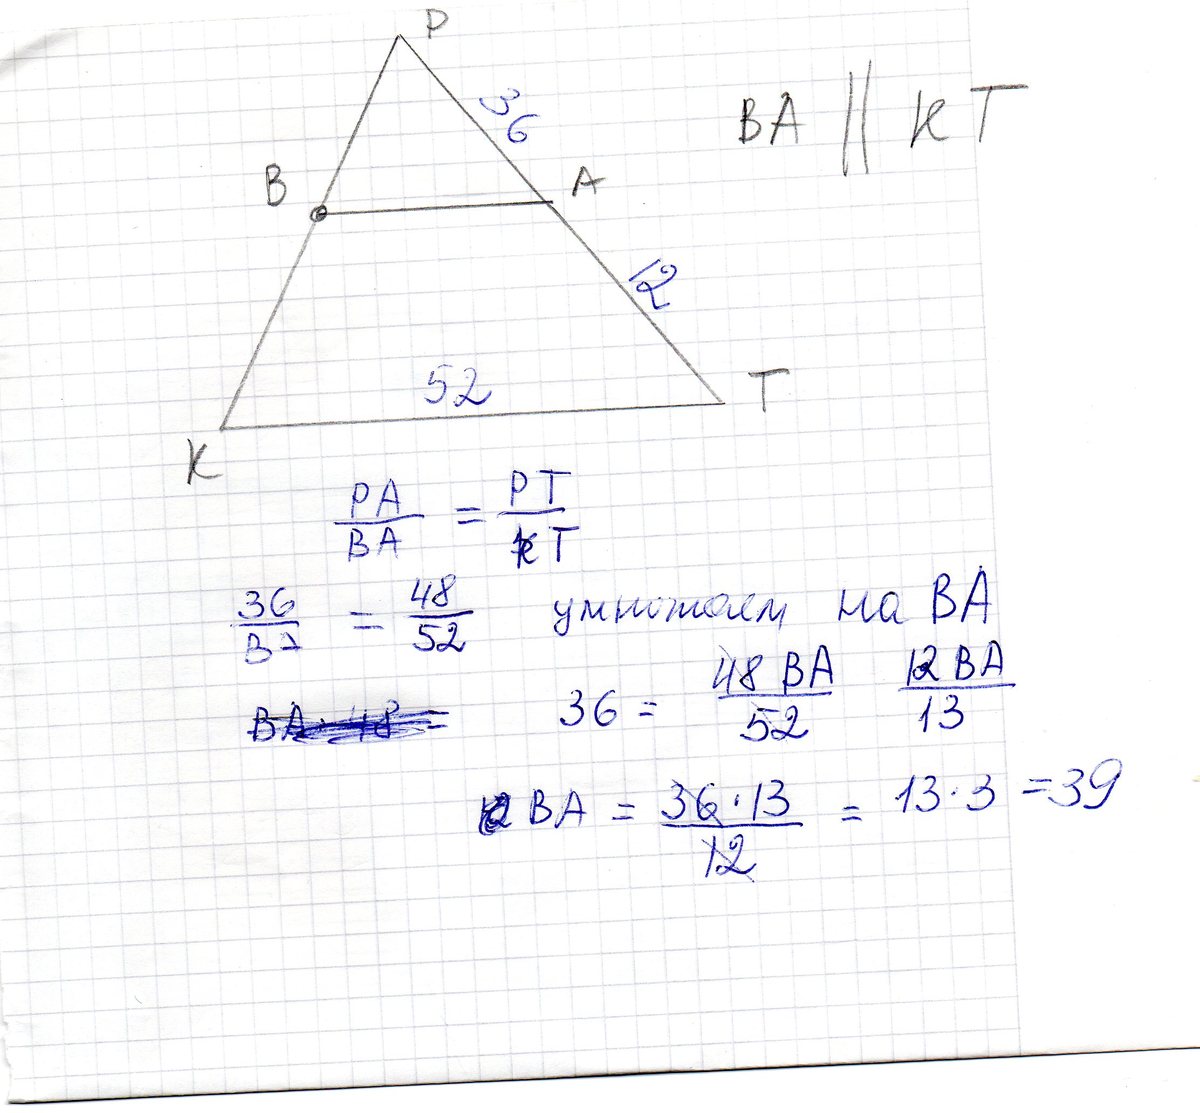 P
36
BA || KT
B
A
12
52
T
K
PA/BA = PT/KT
36/BA = 48/52 умножаем на BA
BA · 48 =
36 = 48 BA/52 12 BA/13
BA = 36 · 13/12 = 13 · 3 = 39